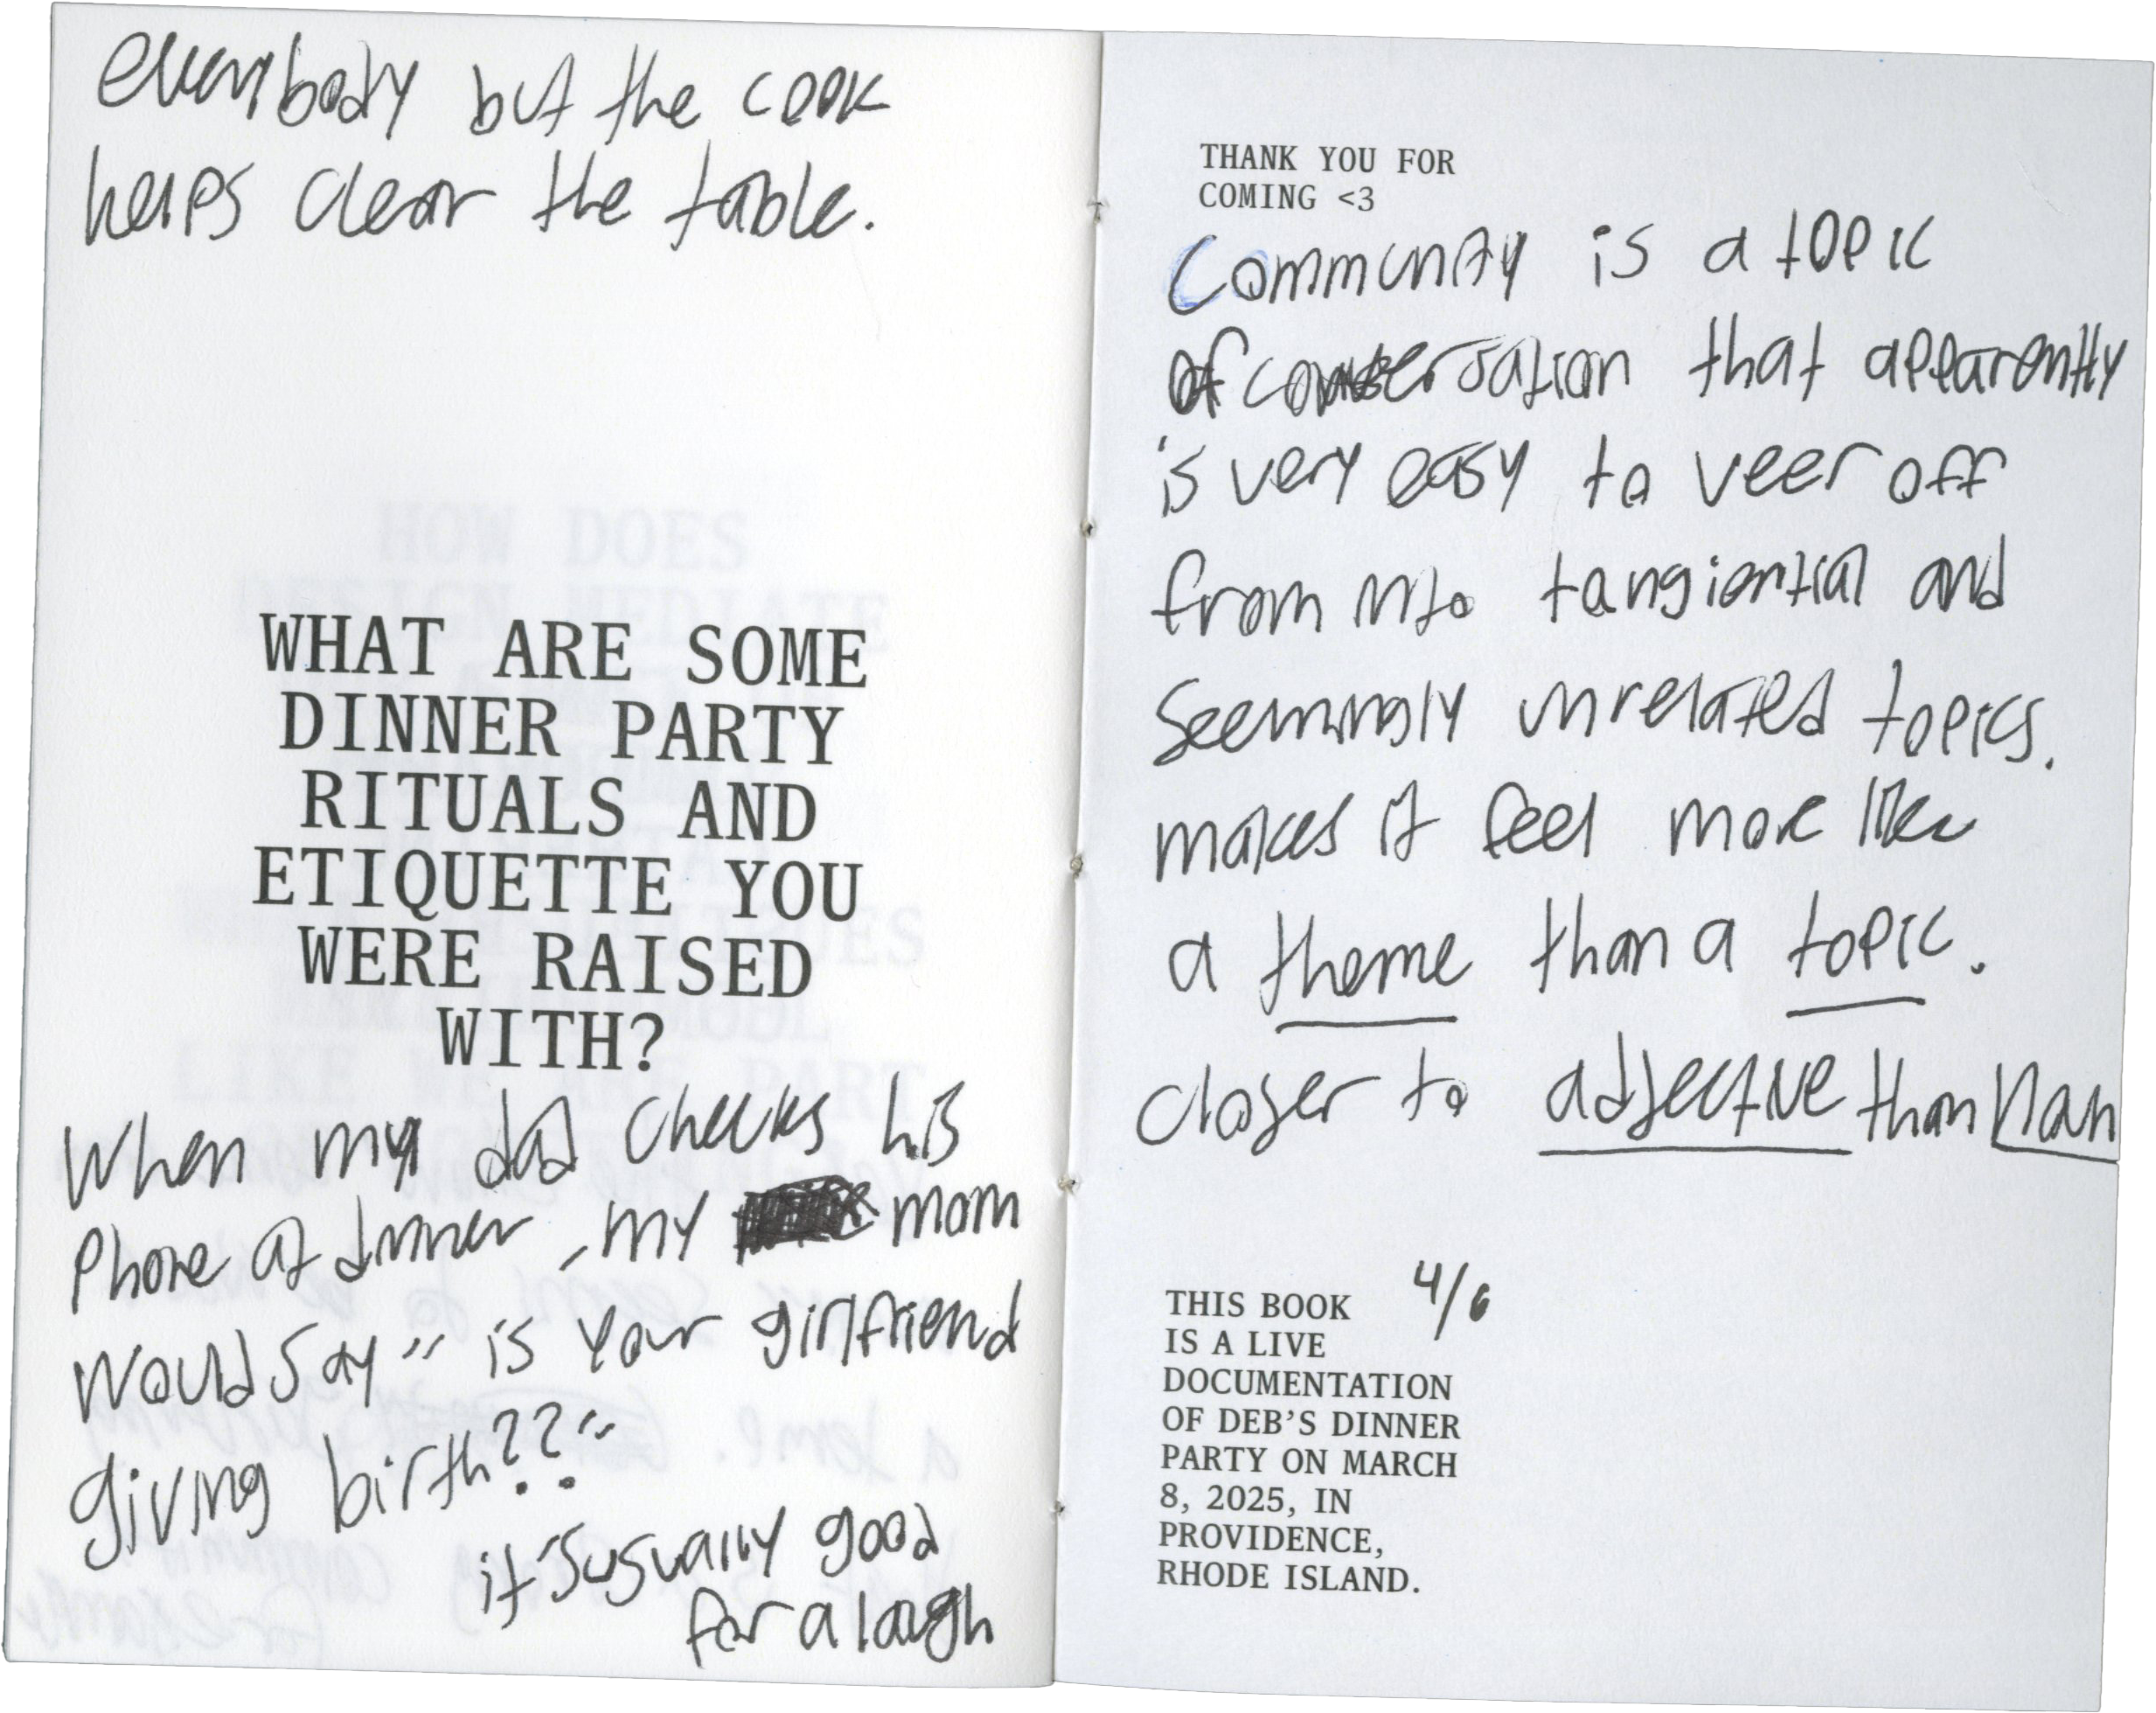 everybody but the cook
helps clear the table.
WHAT ARE SOME
DINNER PARTY
RITUALS AND
ETIQUETTE YOU
WERE RAISED
WITH?
When my dad checks his
phone at dinner, my mom
would say " is your girlfriend
giving birth??"
it's usually good
for a laugh
THANK YOU FOR
COMING <3
Community is a topic
of conversation that apparently
is very easy to veer off
from into tangiential and
seemingly unrelated topics.
makes it feel more like
a theme than a topic.
closer to adjective than noun
THIS BOOK 4/6
IS A LIVE
DOCUMENTATION
OF DEB'S DINNER
PARTY ON MARCH
8, 2025, IN
PROVIDENCE,
RHODE ISLAND.